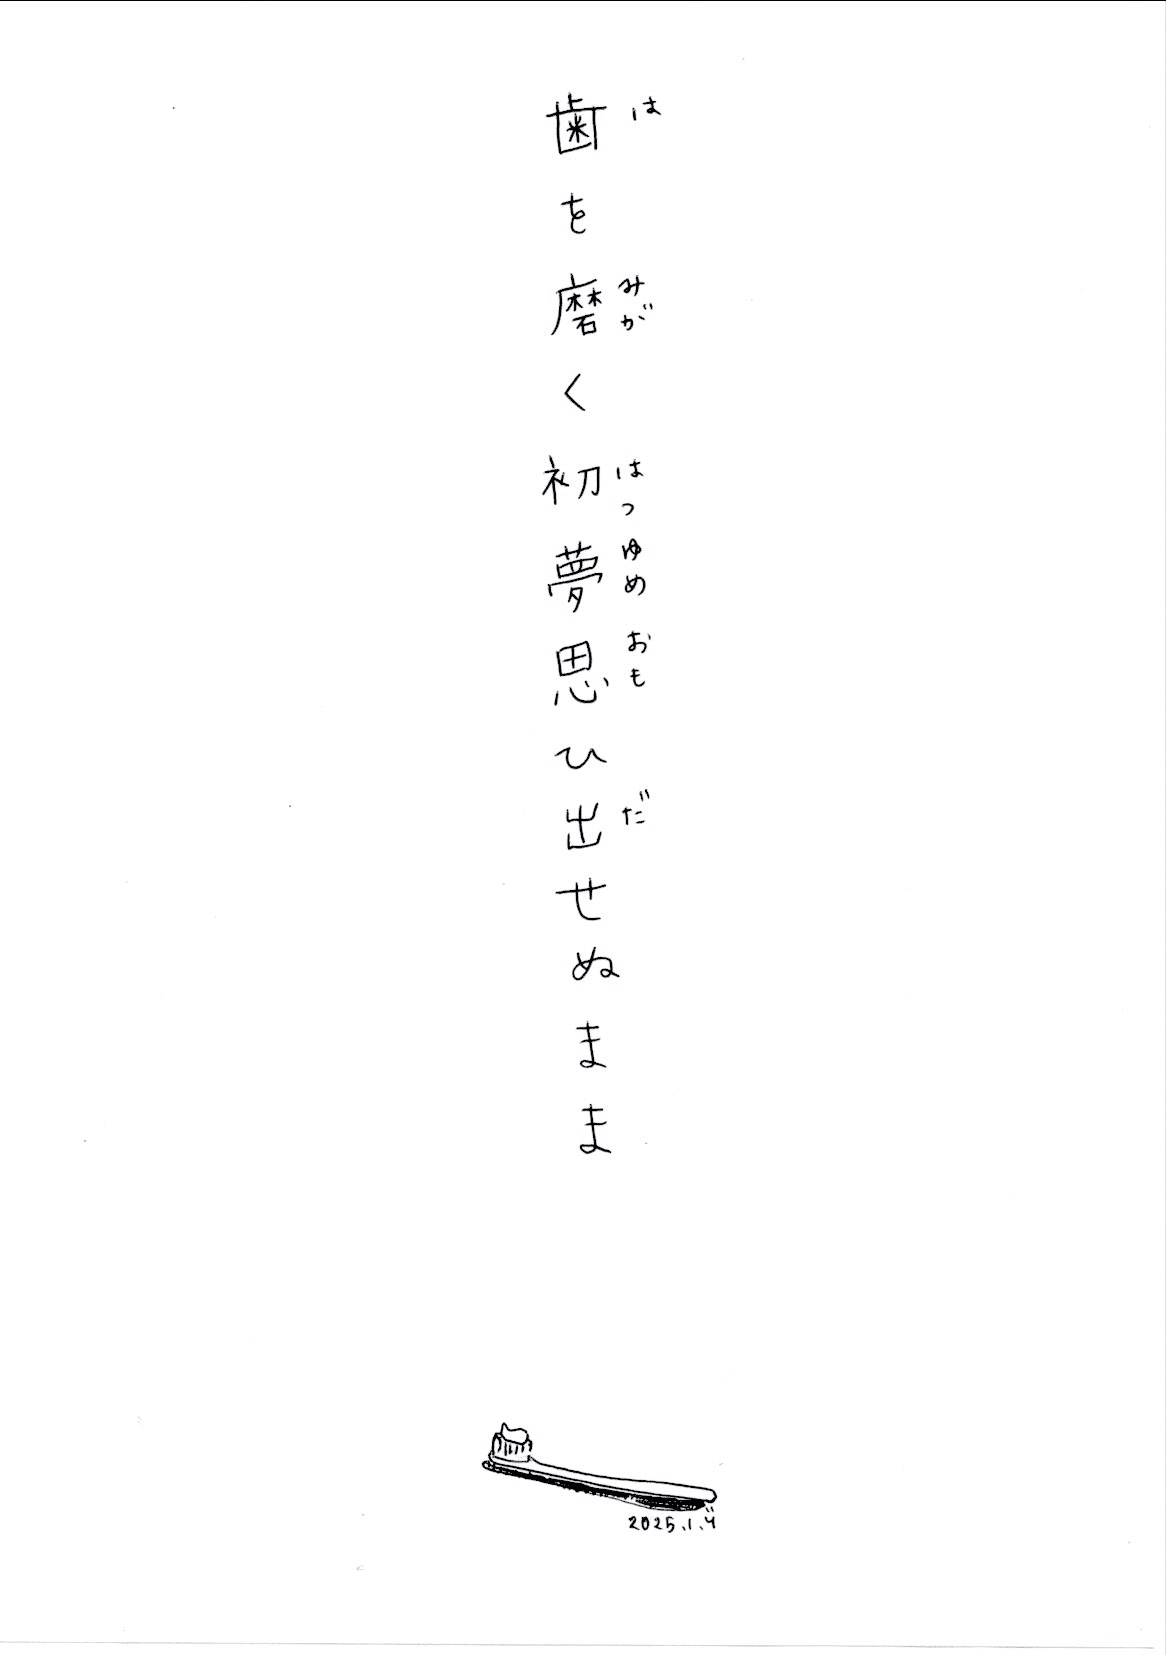 歯を磨く初夢思ひ出せぬまま
は
みが
はつゆめ
おも
だ
2025.1.4